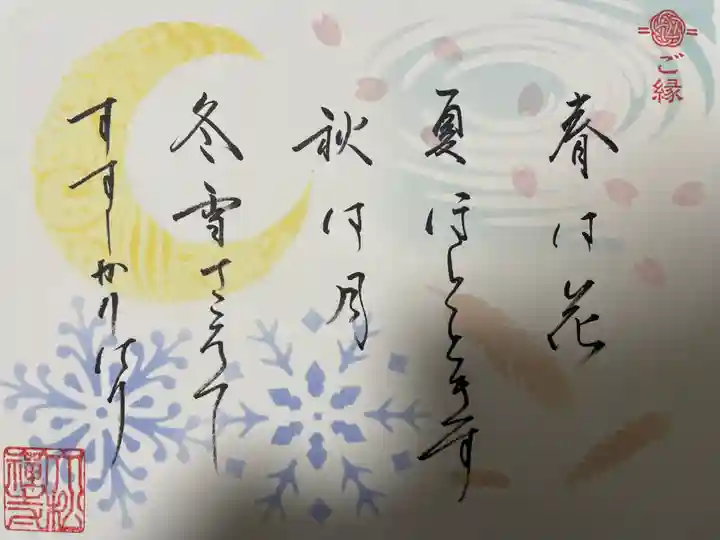 ご縁
春は花
夏ほととぎす
秋は月
冬雪さえて
すずしかりけり
大松
禅寺